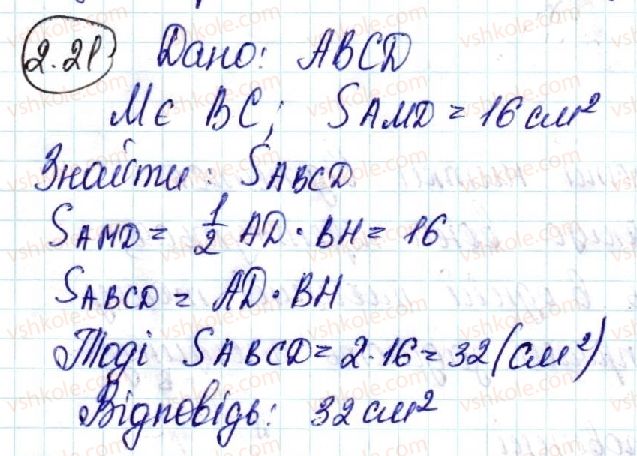 2.21 Дано: ABCD
M є BC; SAMD = 16 см²
Знайти: SABCD
SAMD = 1/2 AD · BH = 16
SABCD = AD · BH
Тоді SABCD = 2 · 16 = 32 (см²)
Відповідь: 32 см²